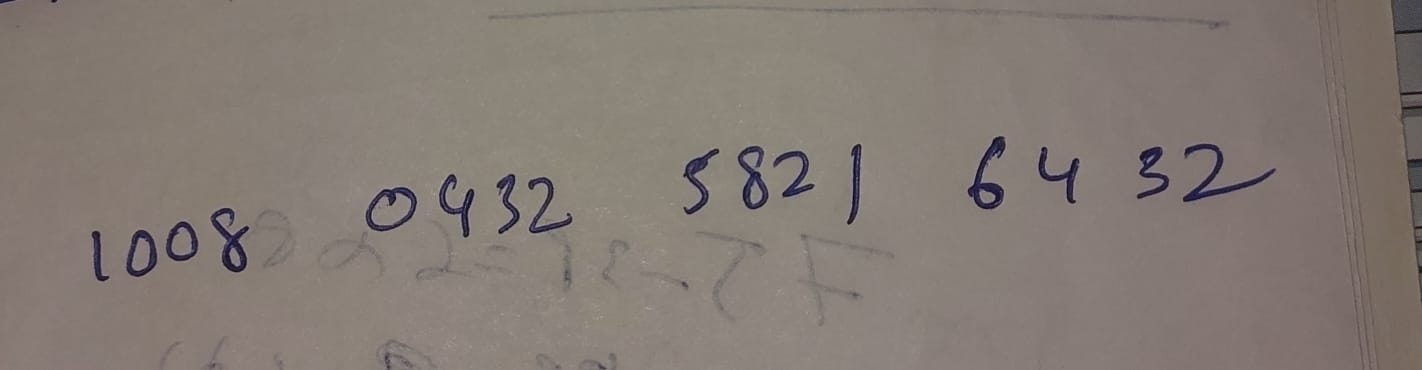 1008 0432 5821 6432